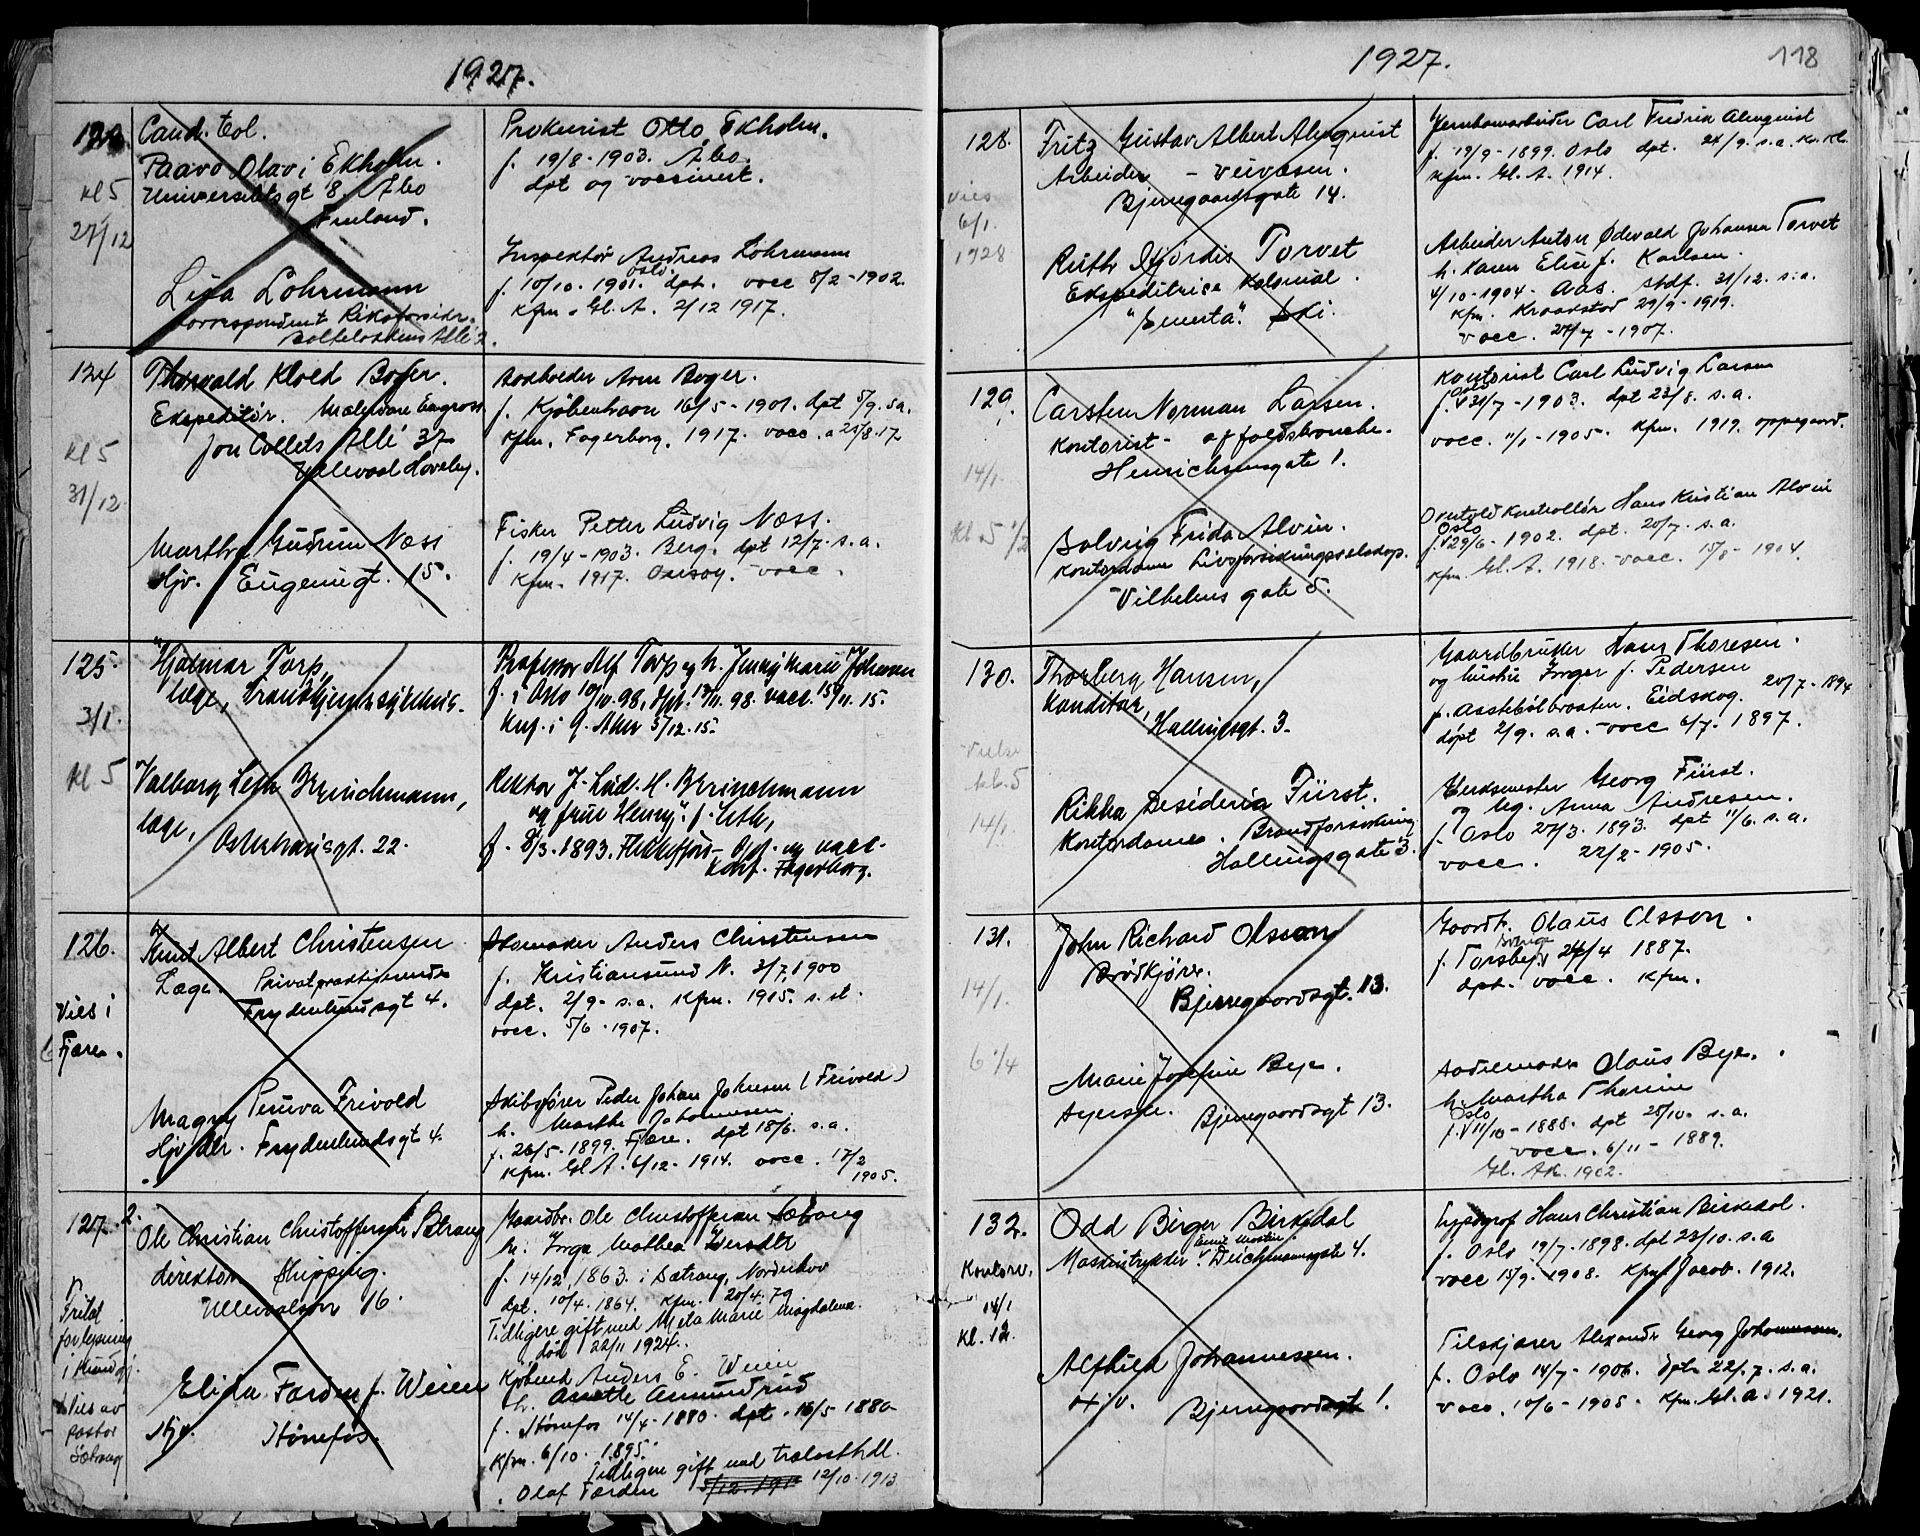 1927.
123.
Kl 5
27/12
Cand. Col.
Paavo Olavi Ekholm.
Universitetsgt 8, Åbo
Finland.
Lisa Lohrmann
Korrespondent Riksforsikr.
Prokurist Otto Ekholm.
f. 19/8-1903. Åbo.
dpt og vaccinert.
Inspektør Andreas Lohrmann
f. 10/10-1901. Oslo. dpt. vacc 8/2-1902.
Kfm. Gl. A. 2/12 1917.
124
Kl 5
31/12.
Thorvald Kloed Boger.
Ekspeditør. Malervare Engross
Jon Collets Allé 37
Ullevaal Haveby.
Martha Gudrun Næss
Hjv. Eugeniegt. 15.
Bokholder Arne Boger.
f. Kjöbenhavn 16/5-1901. dpt 5/9. s.a.
Kfm. Fagerborg. 1917. vacc. 25/8.17
Fisker Petter Ludvig Næss.
f. 19/4-1903. Berg. dpt 12/7. s.a.
Kfm. 1917. Onsøy. vacc.
125.
3/1.
Kl 5
Hjalmar Torp,
læge,
Valborg Leth Brinchmann,
læge, Oskarsgt. 22.
Professor Alf Torp og h. Jenny Marie Johnson
f. i Oslo 10/10.98, dpt. 13/11.98. vacc. 15/11.15.
Knf. i G. Aker 5/12.15.
Rektor J. Lud. M. Brinchmann
og frue Henny f. Leth,
f. 8/3.1893. Flekkefjord- Dpt. og vacc.
Konf. Fagerborg.
126.
Vies i
Fjære.
Knut Albert Christensen
Læge. Privatpraktiserende
Frydenlundsgt 4.
Magny Peruva Frivold
Hjv. Frydenlundsgt 4.
Skomaker Anders Christensen
f. Kristiansund N. 3/7, 1900
dpt. 2/9- s.a. Kfm. 1915. s. st.
vacc. 5/6-1907.
Skibsfører Peder Johan Johnsen (Frivold)
h. Marthe Johannesen
f. 26/5-1899. Fjære. dpt 18/6. s.a.
Kfm. Gl. A. 6/12-1914. vacc. 17/2
1905.
127.
2.
Fritat
for lysning
i Kundgj.
Vies av
pastor
Sætrang
Ole Christian Christoffersen Sætrang
direktør Shipping.
Ullevålsvn 16.
Elida Færden f. Weien
Hjv. Hönefos.
Gaardbr. Ole Christoffersen Sætrang
h. Inga Mathea
f. 14/12, 1863. i Sætrang, Norderhov
dpt. 10/4. 1864. Kfm. 20/4.79
Tidligere gift med Meta Marie Magdalena.
död 22/11 1924.
Kjøbmd Anders E. Weien
h. Anette Amundrud
f. Hönefos 14/4-1880. dpt. 16/5 1880
Kfm. 6/10. 1895.
Tidligere gift med trælasthdl.
Olaf Færden 12/10.1913
1927.
118
128.
Vies
6/1.
1928
Fritz Gustav Albert Almquist
Arbeider - veivæsen.
Bjerregaardsgate 14.
Ruth Hjördis Torvet
Ekspeditrice Kolonial.
"Smerta". Ski.
Jernbanearbeider Carl Fredrik Almquist
f. 19/9-1899. Oslo dpt. 24/9. s.a.
Kfm. Gl. A. 1914.
Arbeider Anton Ødevald Johansen Torvet
h. Karen Elise f. Karlsen.
4/10-1904. Aas. dpt. 31/12. s.a.
Kfm. Kraakstad 29/9-1919.
vacc. 27/7-1907.
129.
14/1.
Kl. 5 1/2
Carsten Norman Larsen.
Kontorist - affaldsbranche.
Henrichsensgate 1.
Solveig Frida Alvin.
Kontordame Livsforsikringsselskap.
Vilhelms gate 5.
Kontorist Carl Ludvig Larsen
Oslo
f. 31/7-1903. dpt 23/8. s.a.
vacc. 11/1-1905. Kfm. 1919. Oppegaard.
Overtoldkontrollør Hans Kristian Alvin
Oslo
f. 29/6-1902. dpt. 20/7. s.a.
Kfm. Gl. A. 1918. vacc. 15/8-1904.
130.
Vielse
kl. 5
14/1.
Thorberg Hansen,
Konditor,
Hallingsgt. 3.
Rikka Desideria Fürst.
Kontordame. Brandforsikring
Hallingsgate 3.
Gaardbruker Hans Thoresen.
og hustru Inger f. Pedersen
f. Eidskog. 20/7-1894
döpt 2/9. s.a. vacc 6/7. 1897.
Verksmester Georg Fürst.
og hg. Anna Andresen.
f. Oslo 27/3. 1893. dpt 11/6. s.a.
vacc. 22/2-1905.
131.
14/1.
6 1/4
John Richard Olsson
Brödkjörer.
Bjerregaardsgt. 13.
Marie Josefine Bye.
Syerske. Bjerregaardsgt 13.
Gaardbr. Olaus Olsson.
Sverige
f. Torsby 24/4 1887.
dpt. vacc. Kfm.
Sadelmaker Olaus Bye.
h. Martha Thorine
Oslo
f. 11/10-1888. dpt 25/10. s.a.
vacc. 6/11-1889.
Gl. Ak. 1902.
132.
Kontorv.
14/1
Kl. 12.
Odd Birger Birkedal
Maskintrykker. Deichmannsgate 4.
Alfhild Johannessen.
Hjv. Bjerregaardsgt 1.
Typograf Hans Christian Birkedal.
f. Oslo 19/7-1898. dpt 23/10. s.a
vacc 15/9. 1908. Kfm Jacob. 1912.
Tilskjærer Alexander Georg Johannessen.
f. Oslo 14/7-1906. dpt. 22/7. s.a.
vacc. 10/6-1908. Kfm. Gl. A. 1921.